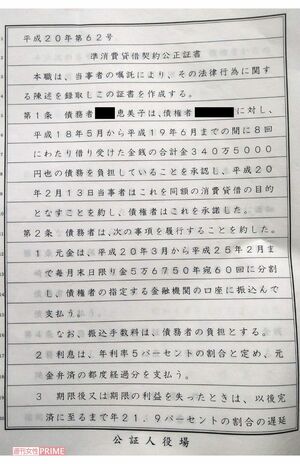 平成20年第62号
準消費貸借契約公正証書
本職は、当事者の嘱託により、その法律行為に関す
る陳述を録取しこの証書を作成する。
第1条 債務者 恵美子は、債権者 に対し、
平成18年5月から平成19年6月までの間に8回
にわたり借り受けた金銭の合計金340万5000
円也の債務を負担していることを承認し、平成20
年2月13日当事者はこれを同額の消費貸借の目的
となすことを約し、債権者はこれを承諾した。
第2条 債務者は、次の事項を履行することを約した。
1 元金は、平成20年3月から平成25年2月ま
で毎月末日限り金5万6750年宛60回に分割
し、債権者の指定する金融機関の口座に振込んで
支払う。
なお、振込手数料は、債務者の負担とする。
2 利息は、年利率5パーセントの割合と定め、元
金弁済の都度経過分を支払う。
3 期限後又は期限の利益を失ったときは、以後完
済に至るまで年21.9パーセントの割合の遅延
公証人役場
週刊女性PRIME